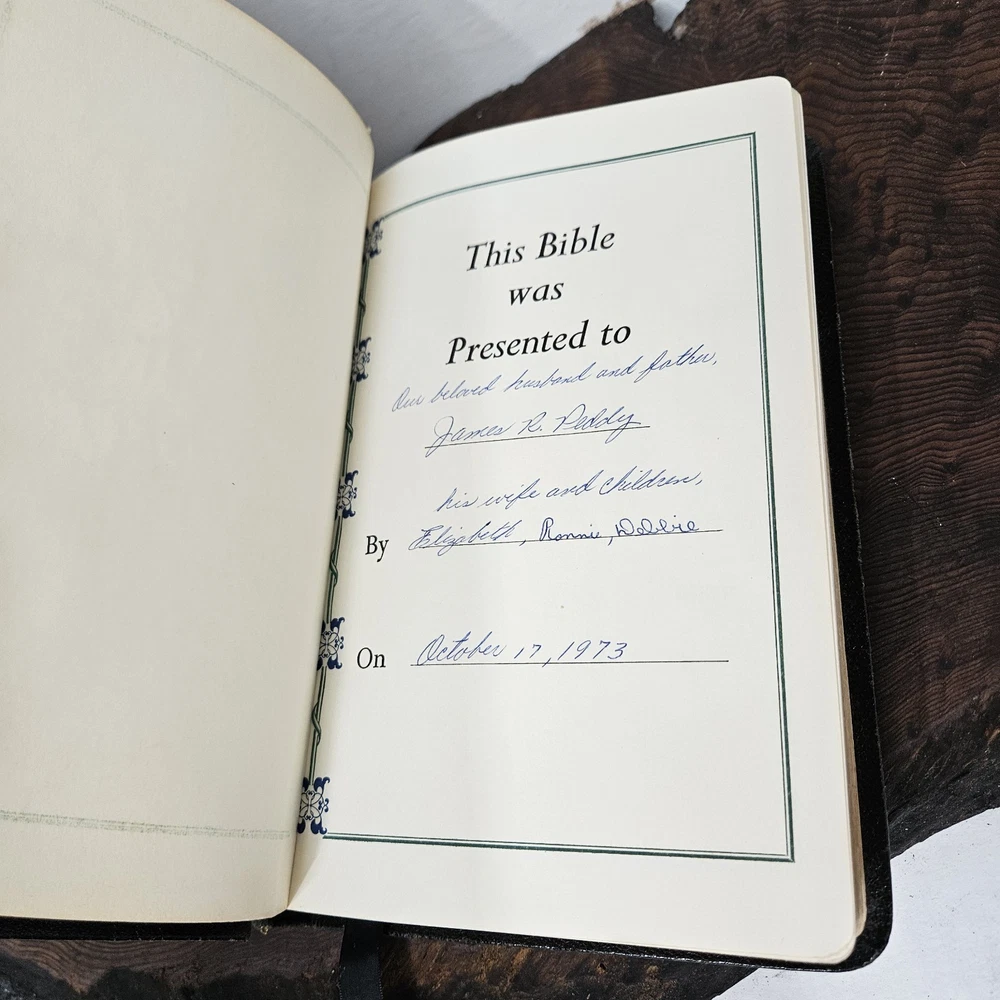 This Bible
was
Presented to
Our beloved husband and father,
James R. Peddy
his wife and children,
By Elizabeth, Ronnie, Debbie
On October 17, 1973